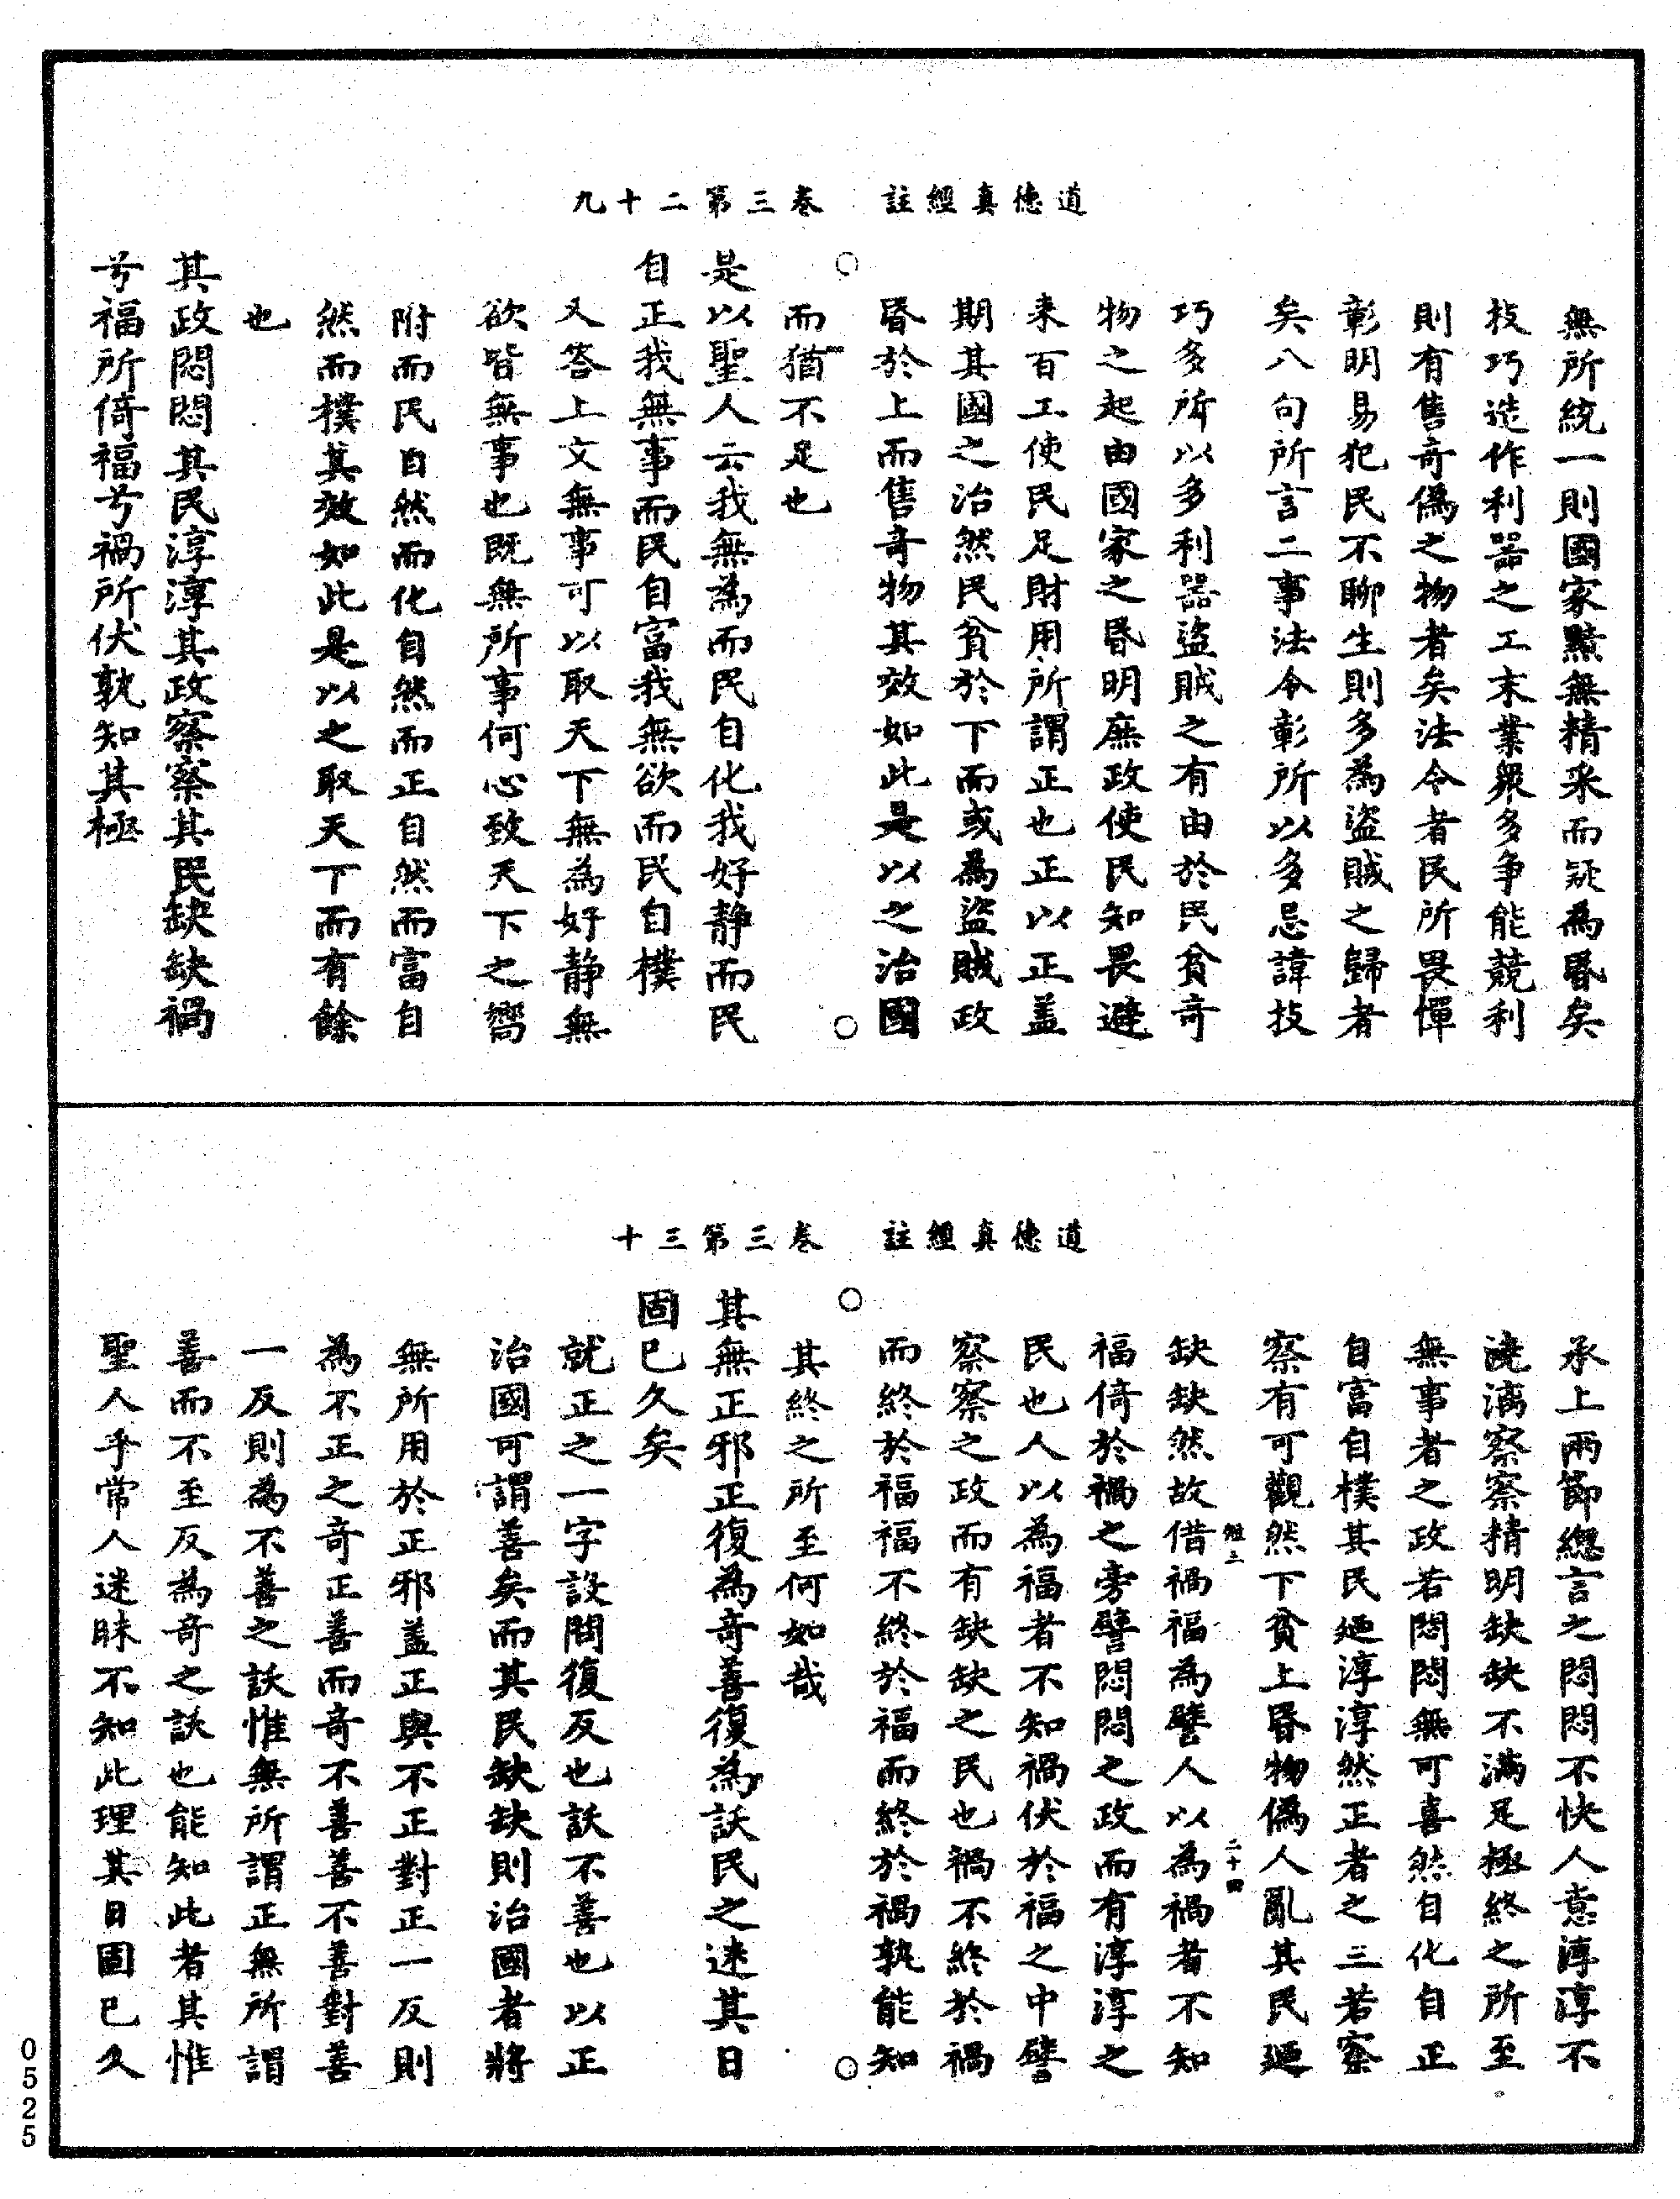 道德真經註　卷三第二十九
無所統一則國家黯無精采而疑為昬矣
技巧造作利器之工末業衆多争能競利
則有售奇偽之物者矣法令者民所畏憚
彰明易犯民不聊生則多為盜賊之歸者
矣八句所言二事法令彰所以多忌諱技
巧多所以多利器盜賊之有由於民貧奇
物之起由國家之昬明庶政使民知畏避
来百工使民足財用所謂正也正以正盖
期其國之治然民貧於下而或為盜賊政
昬於上而售奇物其效如此是以之治國
而猶不足也
是以聖人云我無為而民自化我好静而民
自正我無事而民自富我無欲而民自樸
又答上文無事可以取天下無為好静無
欲皆無事也既無所事何心致天下之嚮
附而民自然而化自然而正自然而富自
然而樸其效如此是以之取天下而有餘
也
其政悶悶其民淳淳其政察察其民缺缺禍
兮福所倚福兮禍所伏孰知其極
道德真經註　卷三第三十
承上兩節緫言之悶悶不快人意淳淳不
澆漓察察精明缺缺不滿足極終之所至
無事者之政若悶悶無可喜然自化自正
自富自樸其民廼淳淳然正者之三若察
察有可觀然下貧上昬物偽人亂其民廼
缺缺然故借禍福為譬人以為禍者不知
二十四
福倚於禍之旁譬悶悶之政而有淳淳之
民也人以為福者不知禍伏於福之中譬
察察之政而有缺缺之民也禍不終於禍
而終於福福不終於福而終於禍孰能知
其終之所至何如哉
其無正邪正復為奇善復為訞民之迷其日
固已久矣
就正之一字設問復反也訞不善也以正
治國可謂善矣而其民缺缺則治國者將
無所用於正邪盖正與不正對正一反則
為不正之奇正善而奇不善善不善對善
一反則為不善之訞惟無所謂正無所謂
善而不至反為奇之訞也能知此者其惟
聖人乎常人迷昧不知此理其日固已久
0525